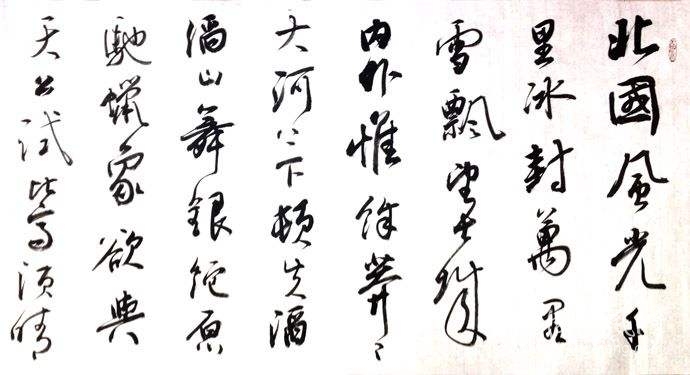 北國風光千
里冰封萬里
雪飄望長城
内外惟餘莽々
大河上下頓失滔
滔山舞銀蛇原
馳蠟象欲與
天公試比高須晴